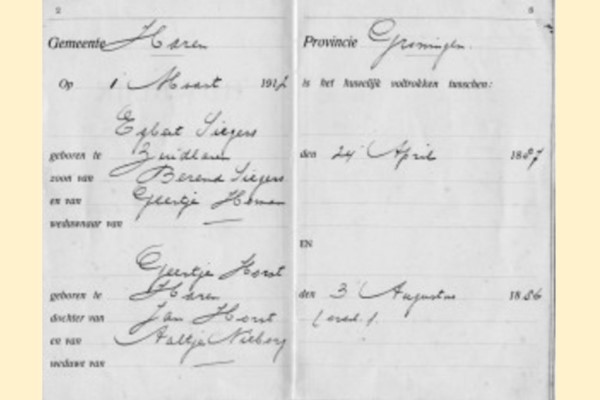 2 3
Gemeente Haren Provincie Groningen.
Op 1 Maart 1912 is het huwelijk voltrokken tusschen:
Egbert Siegers
geboren te Zuidlaren den 24 April 1887
zoon van Berend Siegers
en van Geertje Homan
weduwnaar van —
EN
Geertje Horst
geboren te Haren den 3 Augustus 1886
dochter van Jan Horst
en van Aaltje Nieborg
weduwe van —